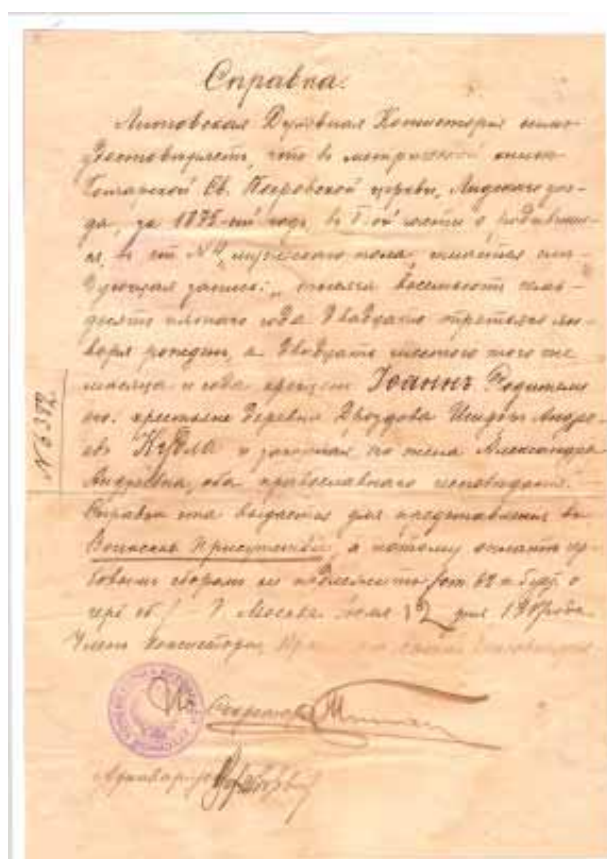 Справка.
Литовская Духовная Консистория симъ
удостоверяетъ, что въ метрической книге
Св. Покровской церкви, Лидскаго уез-
да, за 1875-ый годъ, въ части о родивших-
ся, въ ст. № 4, мужескаго пола, имеется сле-
дующая запись: „тысяча восемьсотъ семь-
десятъ пятаго года двадцать третьяго ян-
варя рожденъ, а двадцать шестого того же
месяца и года крещенъ Іоаннъ. Родители
его: крестьяне деревни Дроздова Андре-
евъ Кудла и законная его жена Александра
Андреевна, оба православнаго исповеданія.
Справка эта выдается для представленія въ
Воинское Присутствіе, а потому оплате гер-
бовымъ сборомъ не подлежитъ
г. Москва 12 дня
Членъ Консисторіи
Секретарь
№ 6382